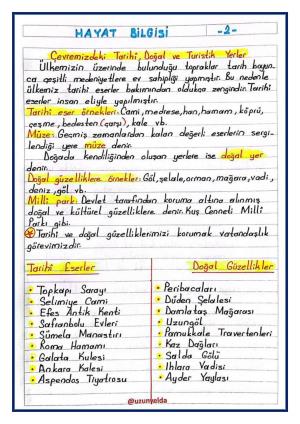 HAYAT BİLGİSİ -2-
Çevremizdeki Tarihi, Doğal ve Turistik Yerler
Ülkemizin üzerinde bulunduğu topraklar tarih boyun-
ca çeşitli medeniyetlere ev sahipliği yapmıştır. Bu nedenle
ülkemiz tarihi eserler bakımından oldukça zengindir. Tarihi
eserler insan eliyle yapılmıştır.
Tarihi eser örnekleri: Cami, medrese, han, hamam, köprü,
çeşme, bedesten (çarşı), kale vb.
Müze: Geçmiş zamanlardan kalan değerli eserlerin sergi-
lendiği yere müze denir.
Doğada kendiliğinden oluşan yerlere ise doğal yer
denir.
Doğal güzelliklere örnekler: Göl, şelale, orman, mağara, vadi,
deniz, göl vb.
Milli park: Devlet tarafından koruma altına alınmış
doğal ve kültürel güzelliklere denir. Kuş Cenneti Milli
Parkı gibi.
Tarihi ve doğal güzelliklerimizi korumak vatandaşlık
görevimizdir.
Tarihi Eserler
Topkapı Sarayı
Selimiye Cami
Efes Antik Kenti
Safranbolu Evleri
Sümela Manastırı
Roma Hamamı
Galata Kulesi
Ankara Kalesi
Aspendos Tiyatrosu
Doğal Güzellikler
Peribacaları
Düden Şelalesi
Damlataş Mağarası
Uzungöl
Pamukkale Travertenleri
Kaz Dağları
Salda Gölü
Ihlara Vadisi
Ayder Yaylası
@uzunyelda